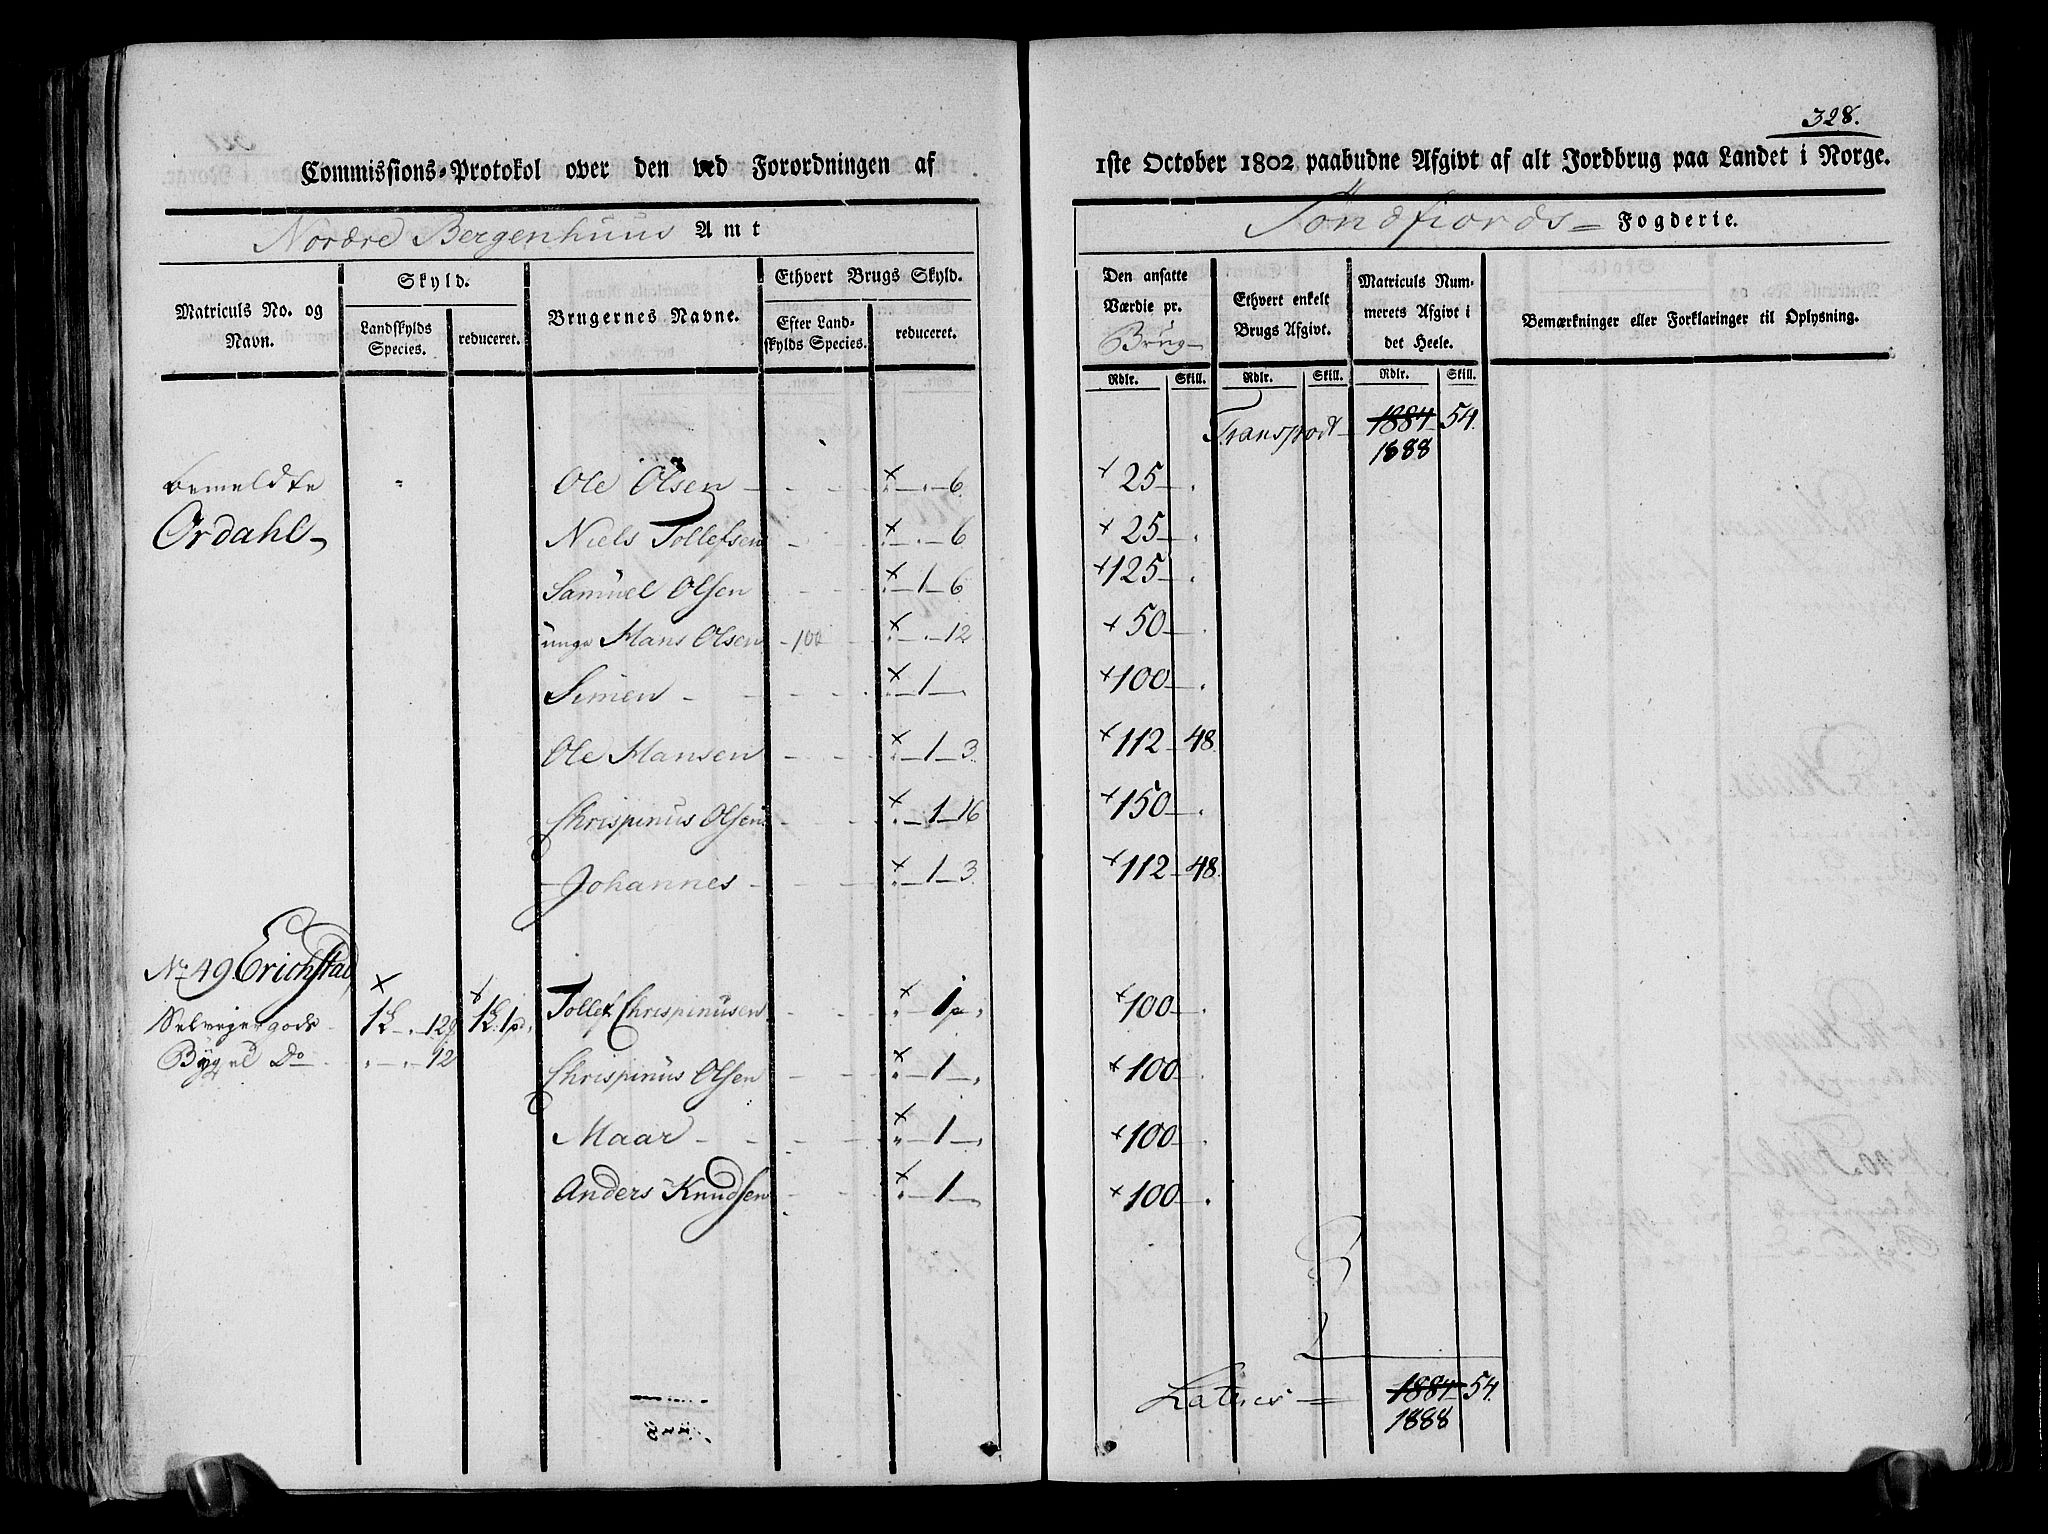 328.
Commissions-Protokol over den ved Forordningen af 1ste October 1802 paabudne Afgivt af alt Jordbrug paa Landet i Norge.
Nordre Bergenhuus Amt
Søndfiords Fogderie.
Matriculs No. og Navn.
Skyld.
Landskylds Species.
reduceret.
Brugernes Navne.
Ethvert Brugs Skyld.
Efter Landskylds Species.
reduceret.
Den ansatte Værdie pr. Brug
Ethvert enkelt Brugs Afgivt.
Matriculs Nummerets Afgivt i det Heele.
Bemærkninger eller Forklaringer til Oplysning.
Rdlr. Skill. Rdlr. Skill. Rdlr. Skill.
Transport 1884 54.
1888
bemeldte Ole Olsen 6 25
Ordahl Niels Tollefsen 6 25
Samuel Olsen 1 6 125
unge Hans Olsen 12 50
Simen 1 100
Ole Hansen 1 3 112 48
Chrispinus Olsen 1 16 150
Johannes 1 3 112 48
No. 49 Erichstad
Selveiergods Tollef Chrispinusen 1 100
Bygsel Do 12 Chrispinus Olsen 1 100
Maar 1 100
Anders Knudsen 1 100
Lateris 1884 54.
1888